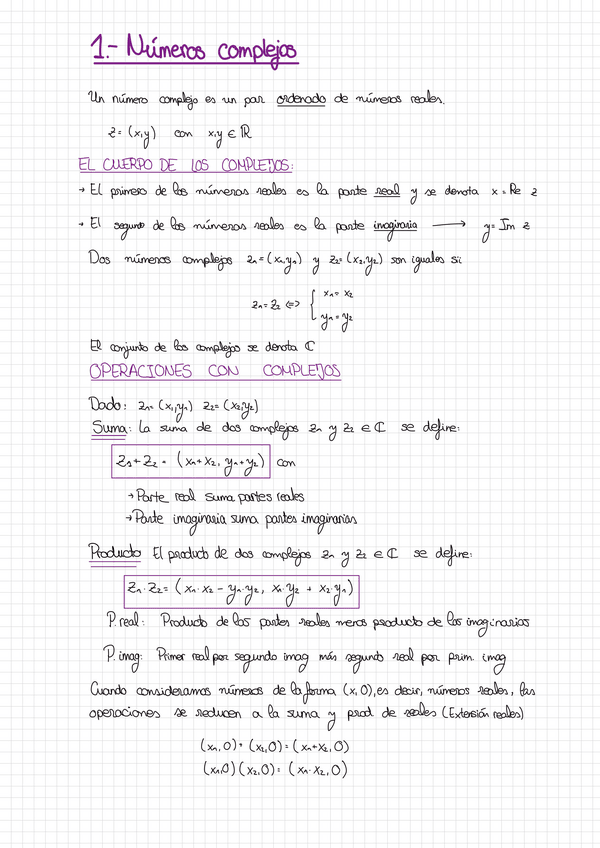 1.- Números complejos
Un número complejo es un par ordenado de números reales.
z = (x,y) con x,y ∈ ℝ
EL CUERPO DE LOS COMPLEJOS:
→ El primero de los números reales es la parte real y se denota x = Re z
→ El segundo de los números reales es la parte imaginaria ⟶ y = Im z
Dos números complejos z₁ = (x₁,y₁) y z₂ = (x₂,y₂) son iguales si:
z₁ = z₂ ⇔ { x₁ = x₂
y₁ = y₂
El conjunto de los complejos se denota ℂ
OPERACIONES CON COMPLEJOS
Dado: z₁ = (x₁,y₁) z₂ = (x₂,y₂)
Suma: La suma de dos complejos z₁ y z₂ ∈ ℂ se define:
z₁ + z₂ = (x₁ + x₂, y₁ + y₂) con
→ Parte real suma partes reales
→ Parte imaginaria suma partes imaginarias
Producto El producto de dos complejos z₁ y z₂ ∈ ℂ se define:
z₁ · z₂ = (x₁ · x₂ - y₁ · y₂, x₁ · y₂ + x₂ · y₁)
P. real: Producto de las partes reales menos producto de las imaginarias
P. imag: Primer real por segundo imag más segundo real por prim. imag
Cuando consideramos números de la forma (x, 0), es decir, números reales, las
operaciones se reducen a la suma y prod. de reales (Extensión reales)
(x₁, 0) + (x₂, 0) = (x₁ + x₂, 0)
(x₁, 0) (x₂, 0) = (x₁ · x₂, 0)